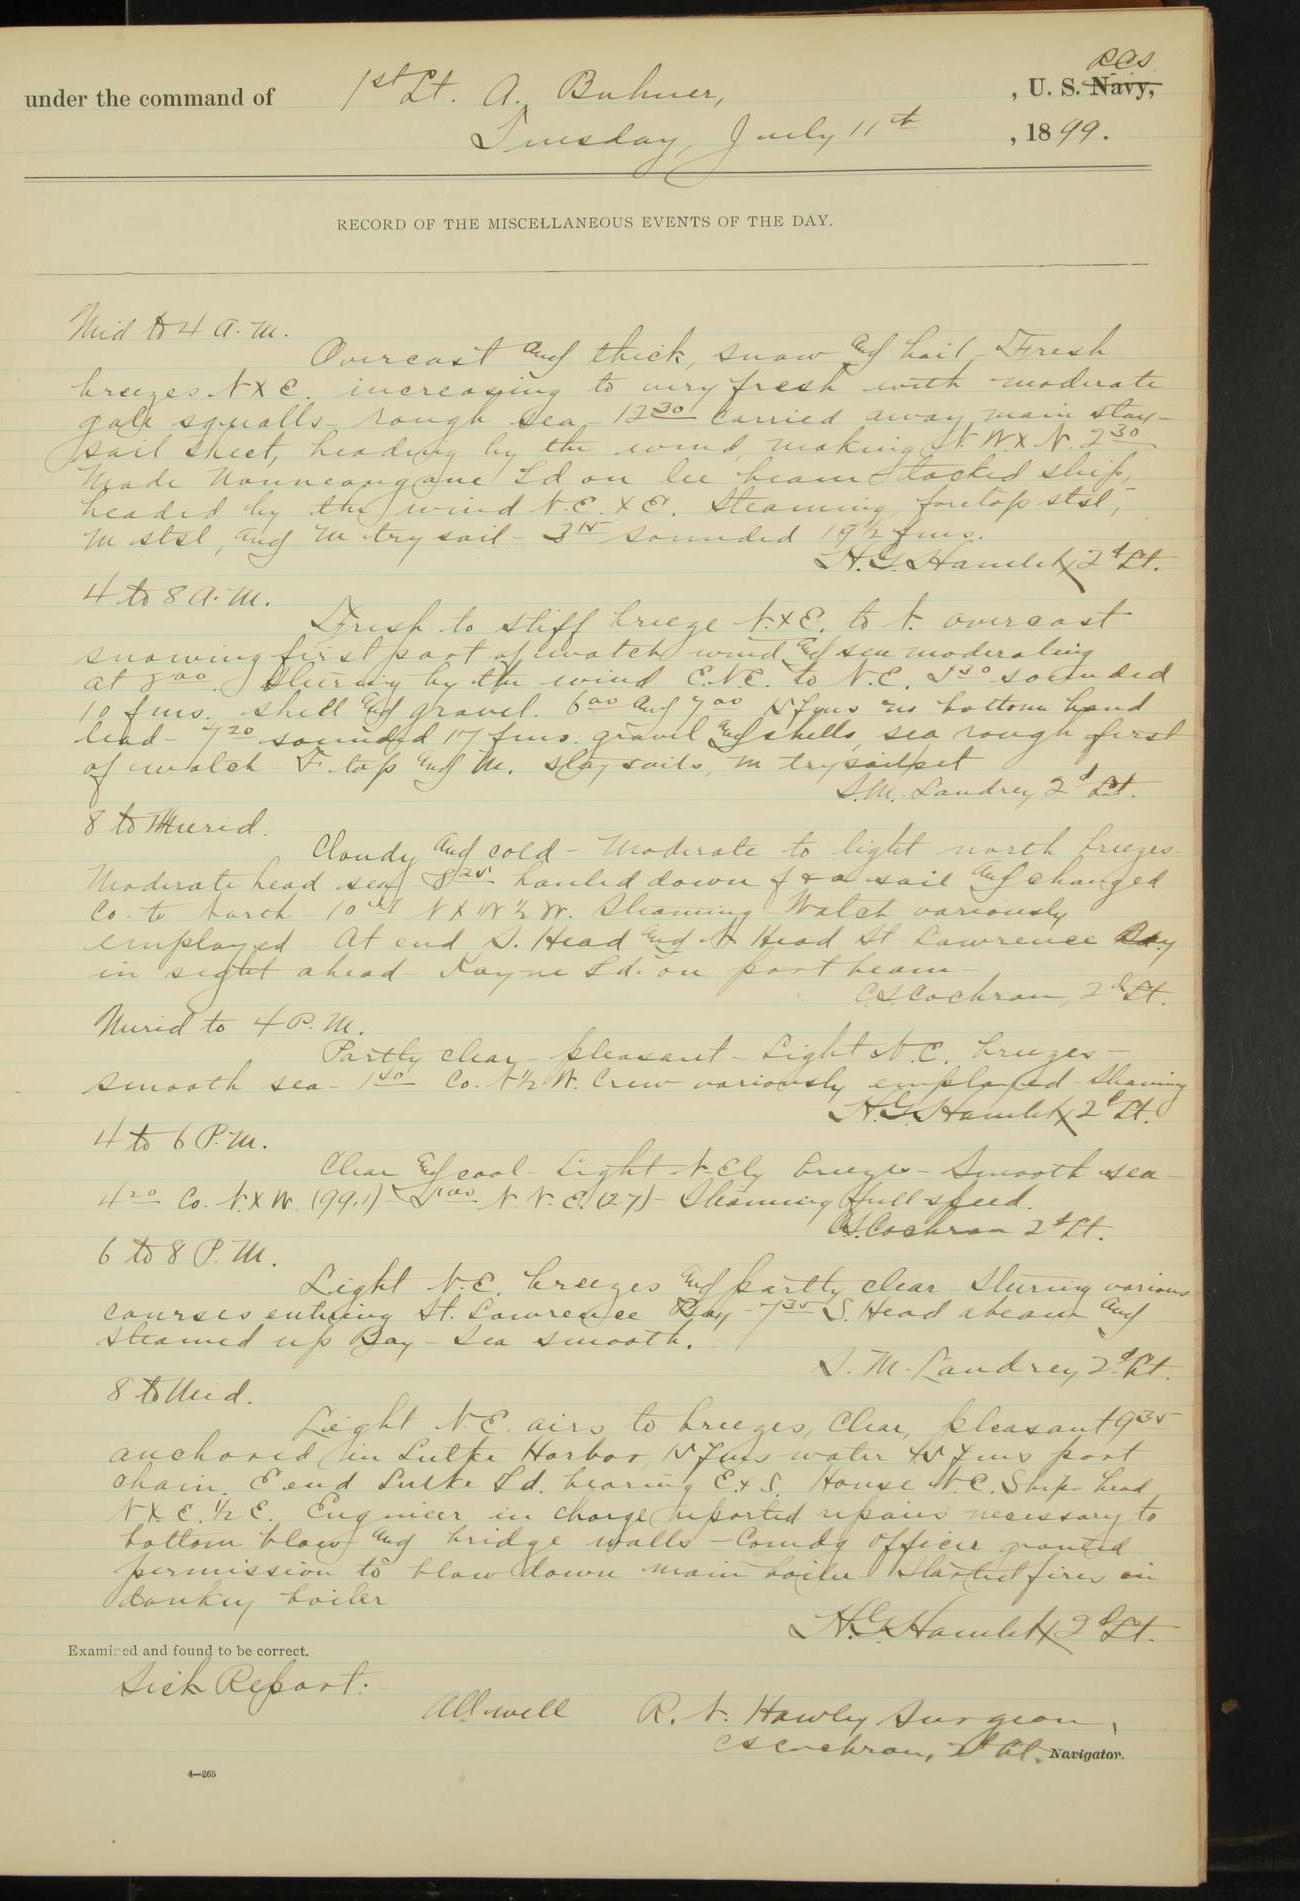 RCS
under the command of 1st Lt. A. Buhner, , U. S. Navy,
Tuesday, July 11th , 1899.
RECORD OF THE MISCELLANEOUS EVENTS OF THE DAY.
Mid to 4 A.M.
Overcast and thick, snow and hail – Fresh
breezes N x E. increasing to very fresh with moderate
gale squalls – rough sea – 12 30 carried away main stay-
sail sheet, heading by the wind, making N. W. x N. 2 30
Made Nunneangane Id on lee beam tacked ship,
headed by the wind N.E. x E. Steaming, foretop stsl,
M stsl, and M trysail – 3 15 sounded 19 1/2 fms.
H.G. Hamlet, 2d Lt.
4 to 8 A.M.
Fresh to stiff breeze N. x E. to N. overcast
snowing first part of watch wind and sea moderating
at 7 00. Steering by the wind E.N.E. to N.E. 5 30 sounded
10 fms. shell and gravel. 6 00 and 7 00 15 fms no bottom hand
lead – 7 20 sounded 17 fms. gravel and shells, sea rough first
of watch – F top and M. staysails, M trysail set
S.M. Landrey 2d Lt.
8 to Merid.
Cloudy and cold – Moderate to light north breezes –
Moderate head sea – 8 25 hauled down f & a sail and changed
Co. to North – 10 N x W 1/2 W. Steaming – Watch variously
employed – At end S. Head and N. Head St Lawrence Bay
in sight ahead – Kayne Id. on port beam –
C.S. Cochran, 2d Lt.
Merid to 4 P.M.
Partly clear – pleasant – Light N.E. breezes –
smooth sea – 1 40 Co. N 1/2 W. Crew variously employed – Steaming
H.G. Hamlet, 2d Lt.
4 to 6 P.M.
Clear and cool – Light N-Ely breeze – Smooth sea –
4 20 Co. N. x W. (99.1) – 5 00 N. N. E. (27) – Steaming full speed.
C.S. Cochran 2d Lt.
6 to 8 P.M.
Light N.E. breezes and partly clear – Steering various
courses entering St. Lawrence Bay – 7 35 S. Head abeam and
steamed up Bay – Sea smooth.
S. M. Landrey 2d Lt.
8 to Mid.
Light N.E. airs to breezes, Clear, pleasant – 9 35
anchored in Lutke Harbor, 15 fms water 45 fms port
chain. E end Lutke Id. bearing E x S. House N. E. Ships head
N x E. 1/2 E. Engineer in charge reported repairs necessary to
bottom blow and bridge walls – Comdg Officer granted
permission to blow down main boiler – Started fires in
donkey boiler
H.G. Hamlet, 2d Lt.
Examined and found to be correct.
Sick Report:
All well R. N. Hawley Surgeon,
C S Cochran, 2d Lt. Navigator.
4—265